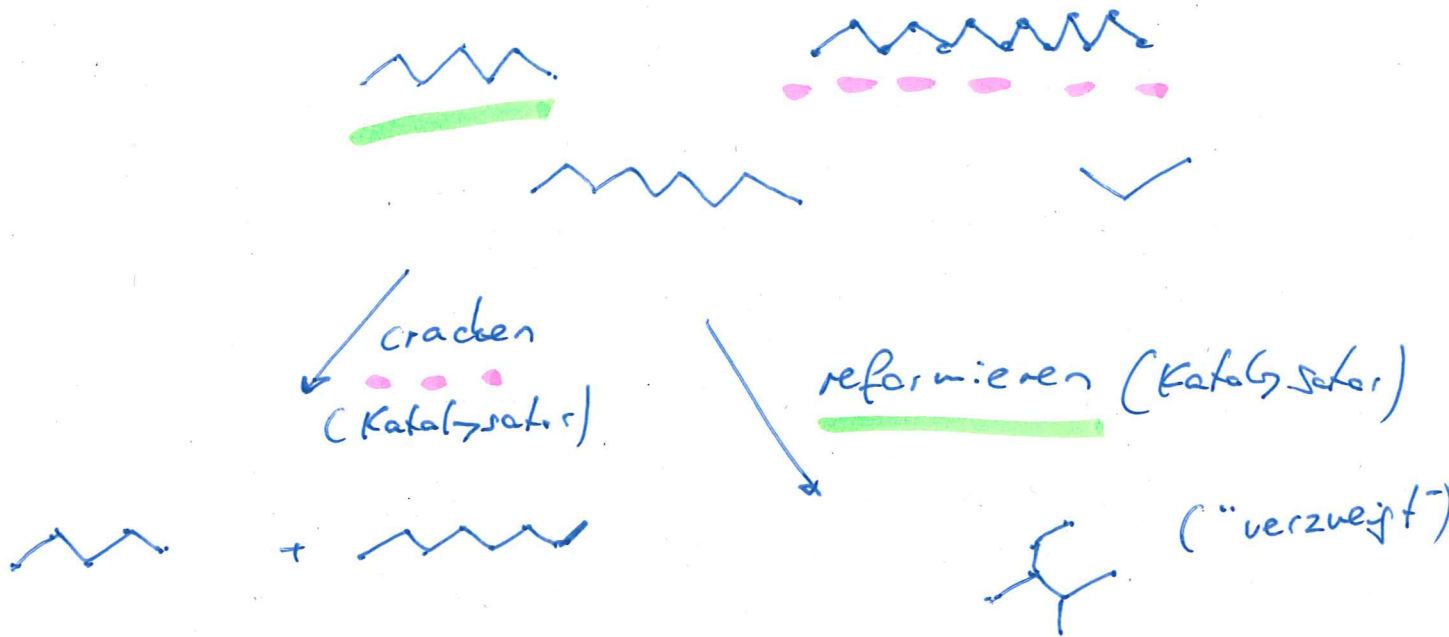 cracken
(Katalysator)
reformieren (Katalysator)
+
("verzweigt")